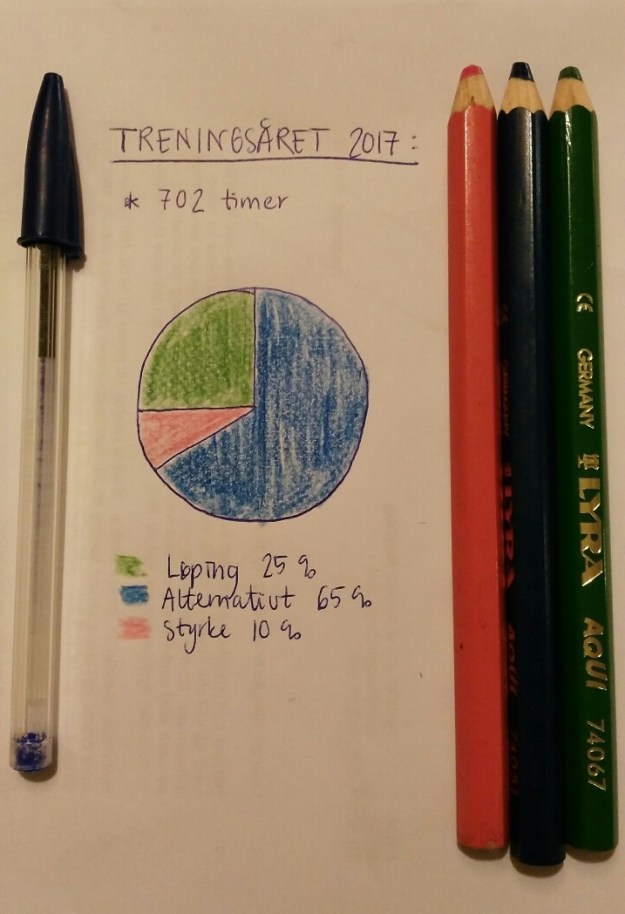 TRENINGSÅRET 2017:
* 702 timer
Løping 25 %
Alternativt 65 %
Styrke 10 %
CE GERMANY LYRA AQUI 74067